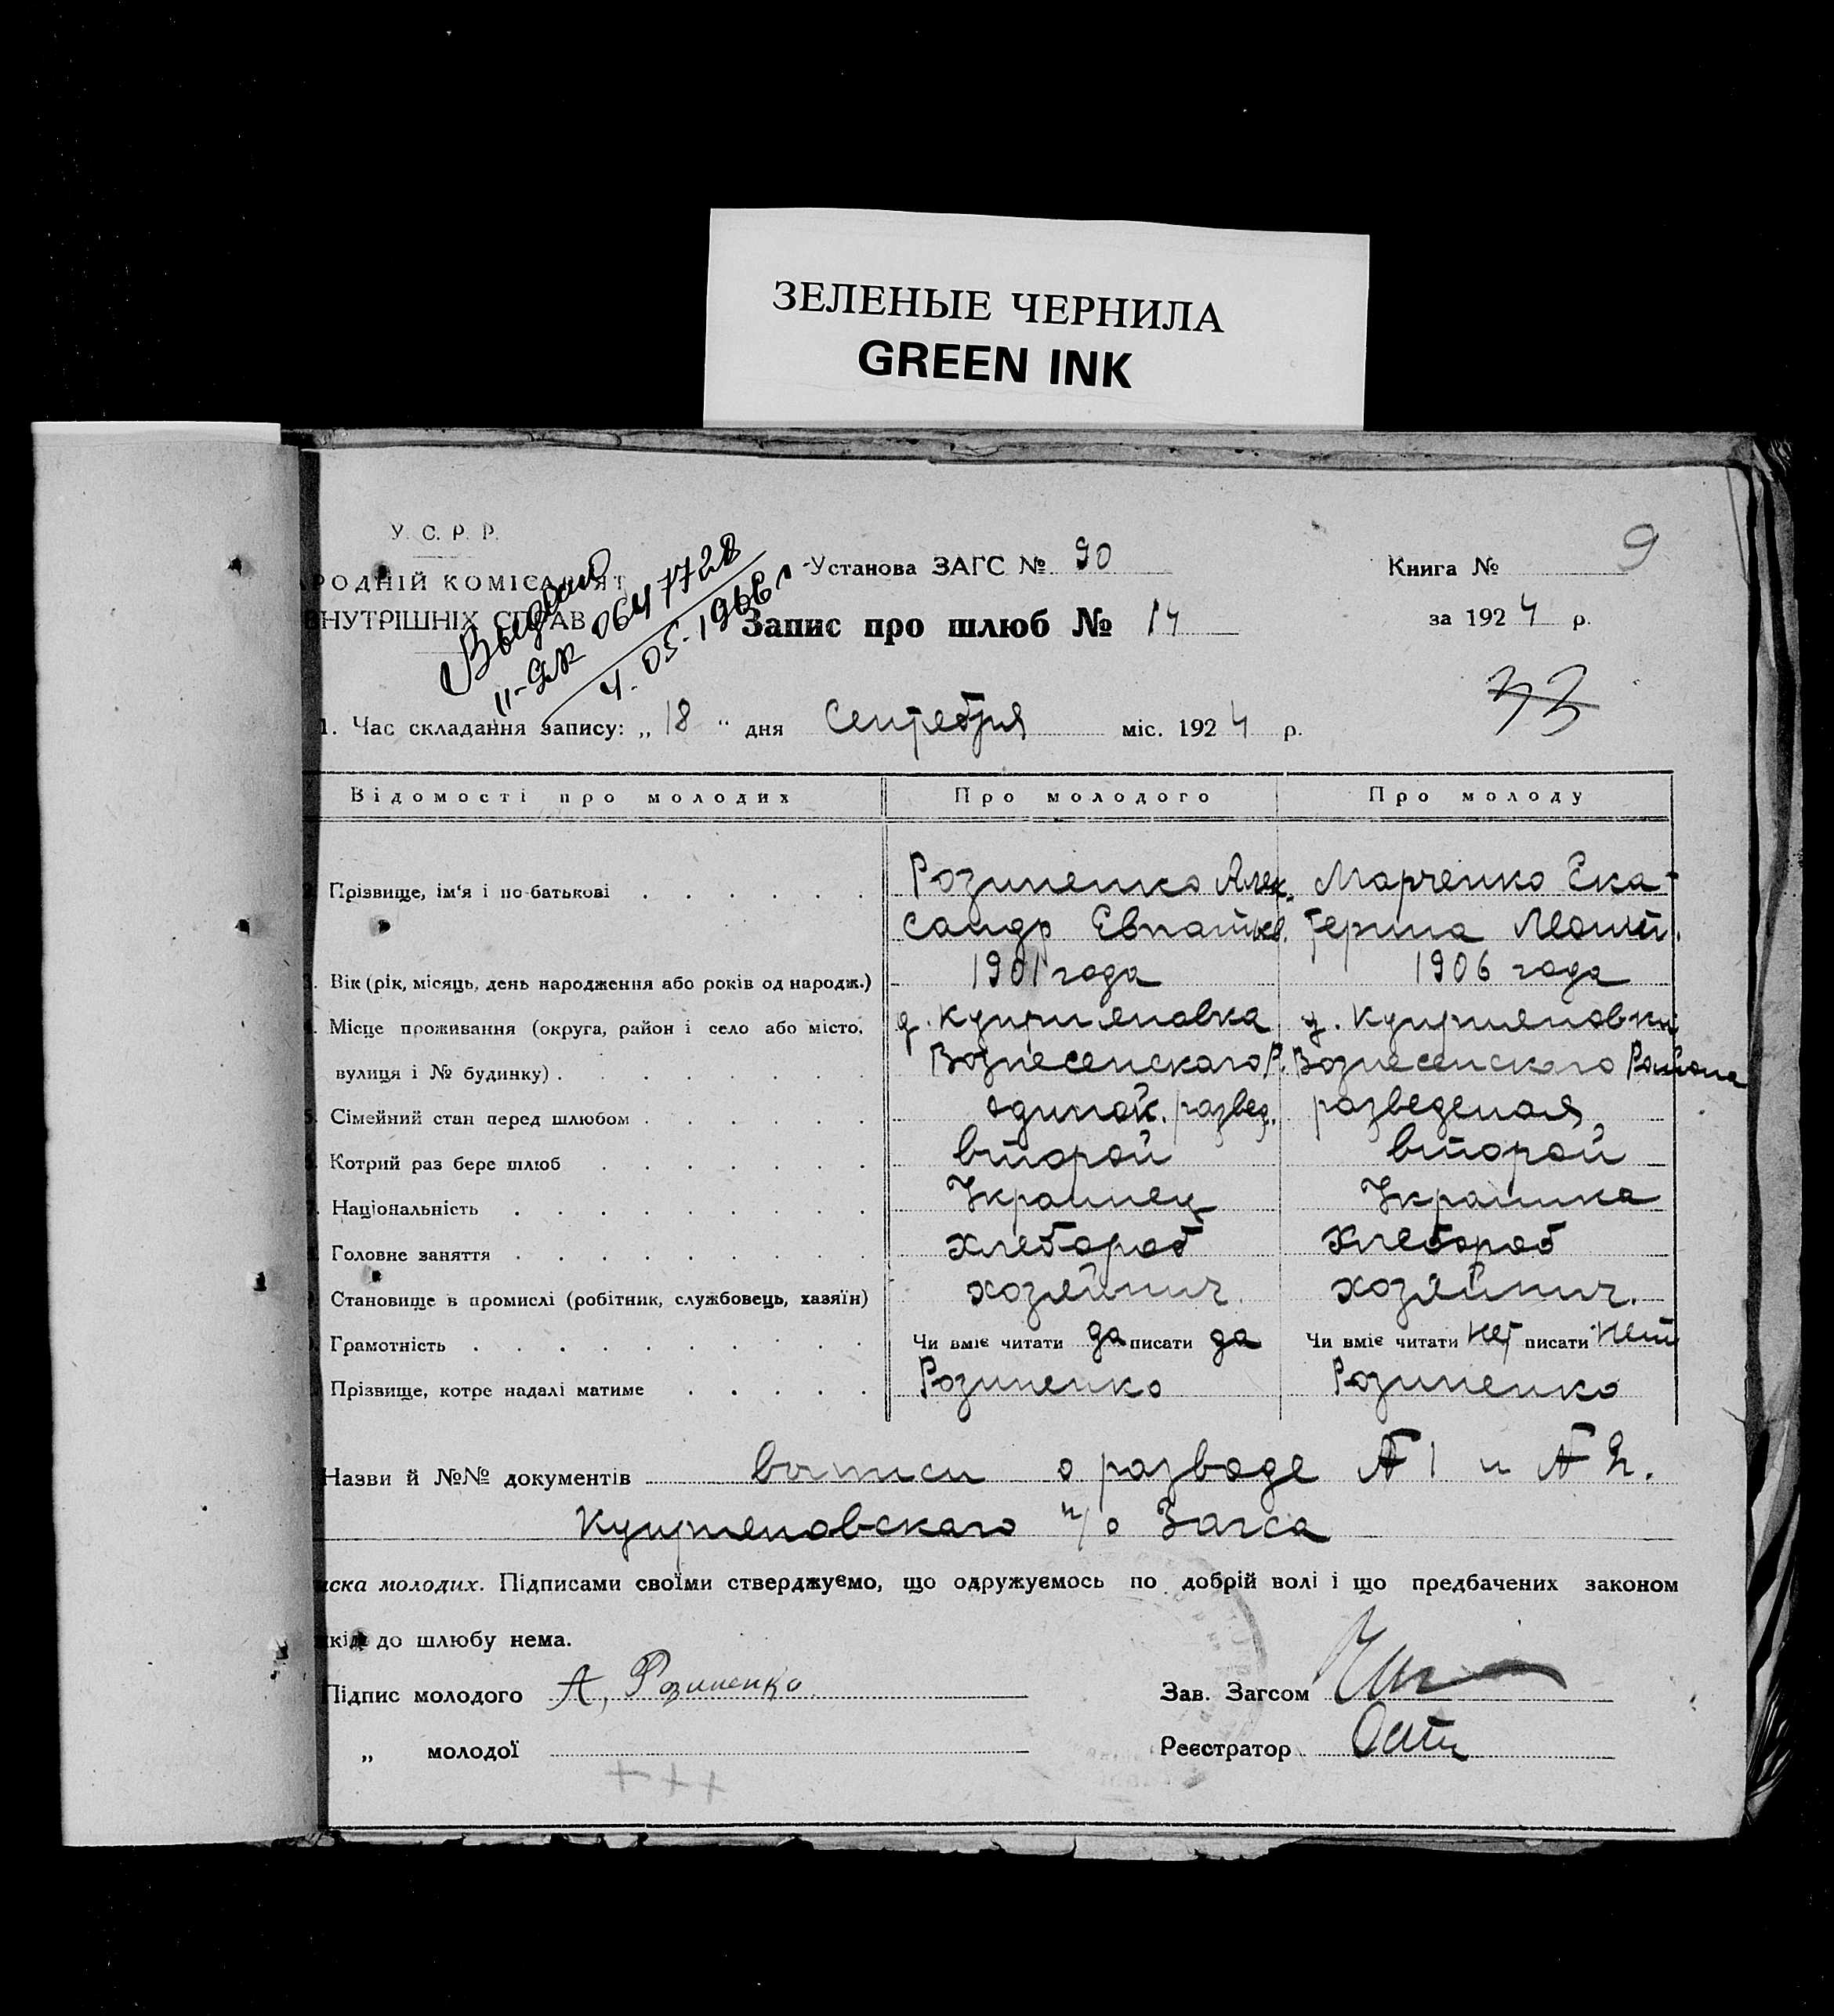 ЗЕЛЕНЫЕ ЧЕРНИЛА
GREEN INK
У. С. Р. Р.
РОДНІЙ КОМІСАРІЯТ
НУТРІШНІХ СПРАВ
Установа ЗАГС № 90
Книга № 9
Запис про шлюб № 14
за 1924 р.
Выдан
II-ЯК 0647728
4.05-1966 г
33
1. Час складання запису: „18“ дня Сентебря міс. 1924 р.
Відомості про молодих Про молодого Про молоду
Прізвище, ім'я і по-батькові Розиненко Алек- Марченко Ека-
сандр терина
Вік (рік, місяць, день народження або років од народж.) 1901 года 1906 года
Місце проживання (округа, район і село або місто, д. Куприяновка д. Куприяновки
вулиця і № будинку) Вознесенского Р. Вознесенского Района
Сімейний стан перед шлюбом одинок. развед. разведеная
Котрий раз бере шлюб второй второй
Національність Украинец Украинка
Головне заняття хлебороб хлебороб
Становище в промислі (робітник, службовець, хазяїн) хозяйнич. хозяйнич.
Грамотність Чи вміє читати да писати да Чи вміє читати нет писати нет
Прізвище, котре надалі матиме Розиненко Розиненко
Назви й №№ документів о разводе № 1 и № 2.
Куприяновского п/о Загса
иска молодих. Підписами своїми стверджуємо, що одружуємось по добрій волі і що предбачених законом
кід до шлюбу нема.
Підпис молодого А, Розиненко
Зав. Загсом
„ молодої
Реєстратор
+++